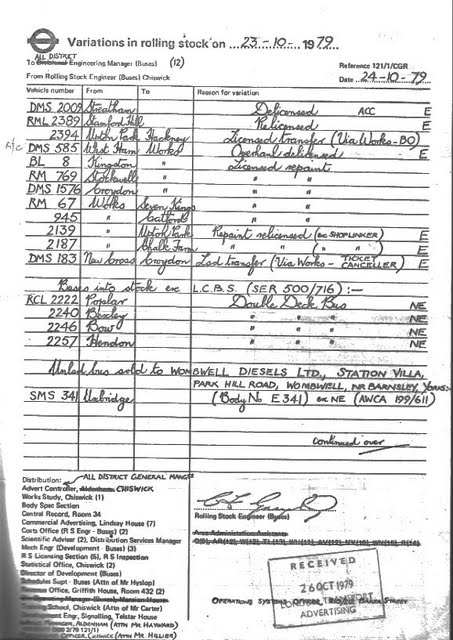 Variations in rolling stock on ... 23-10- 1979
ALL DISTRICT
To Divisional Engineering Manager (Buses) (12)
Reference 121/1/CGR
From Rolling Stock Engineer (Buses) Chiswick
Date 24-10-79
Vehicle number From To Reason for variation
DMS 2009 Streatham Delicensed ACC E
RML 2389 Stamford Hill Relicensed E
2394 Upton Park Hackney Licensed transfer (Via Works-BO) E
DMS 585 West Ham Works Overhaul delicensed E
BL 8 Kingston " Licensed repaint
RM 769 Stockwell " " "
DMS 1576 Croydon " " "
RM 67 Works Seven Kings " "
945 " Catford " "
2139 " Upton Park Repaint relicensed (ex SHOPLINKER) E
2187 " Chalk Farm " " ( " " ) E
DMS 183 New Cross Croydon Lsd transfer (Via Works - TICKET CANCELLER) E
Buses into stock ex L.C.B.S. (SER 500/716) :-
RCL 2222 Poplar Double Deck Bus NE
2240 Bexley " " " NE
2246 Bow " " " NE
2257 Hendon " " " NE
Unlsd bus sold to WOMBWELL DIESELS LTD., STATION VILLA,
PARK HILL ROAD, WOMBWELL, NR BARNSLEY, YORKS:-
SMS 341 Uxbridge (Body No E341) ex NE (AWCA 199/611)
continued over
Distribution: ALL DISTRICT GENERAL MANGRS
Advert Controller, CHISWICK
Works Study, Chiswick (1)
Body Spec Section
Central Record, Room 34
Commercial Advertising, Lindsay House (7)
Costs Office (R S Engr - Bus) (2)
Scientific Adviser (2), Distribution Services Manager
Mech Engr (Development - Buses) (3)
R S Licensing Section (5), R S Inspection
Statistical Office, Chiswick (2)
Director of Development (Buses)
Schedules Supt - Buses (Attn of Mr Hyslop)
Revenue Office, Griffith House, Room 432 (2)
Training School, Chiswick (Attn of Mr Carter)
Engr, Signalling, Telstar House
ALDENHAM (ATTN MR HAYWARD)
CHISWICK (ATTN MR HILLIER)
Rolling Stock Engineer (Buses)
Area Administration Assistants
RECEIVED
26 OCT 1979
LONDON TRANSPORT
ADVERTISING